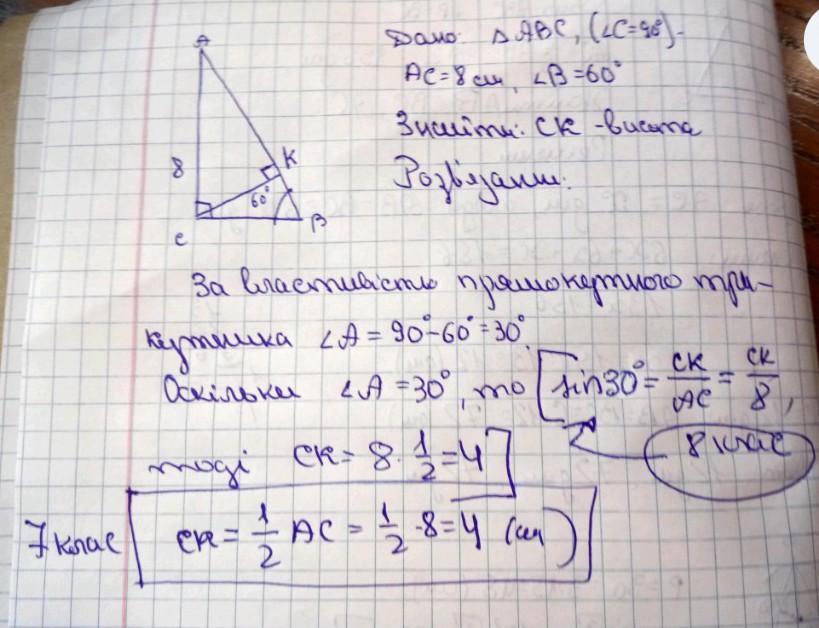 Дано: △ABC, (∠C=90°).
AC=8 см, ∠B=60°
Знайти: CK - висота
Розв'язання:
A
K
8
60°
C
B
За властивістю прямокутного три-
кутника ∠A = 90°-60°=30°.
Оскільки ∠A =30°, то [sin30°= CK/AC = CK/8,
8 клас
тоді CK= 8·1/2=4]
7 клас
CK= 1/2 AC = 1/2 ·8=4 (см)